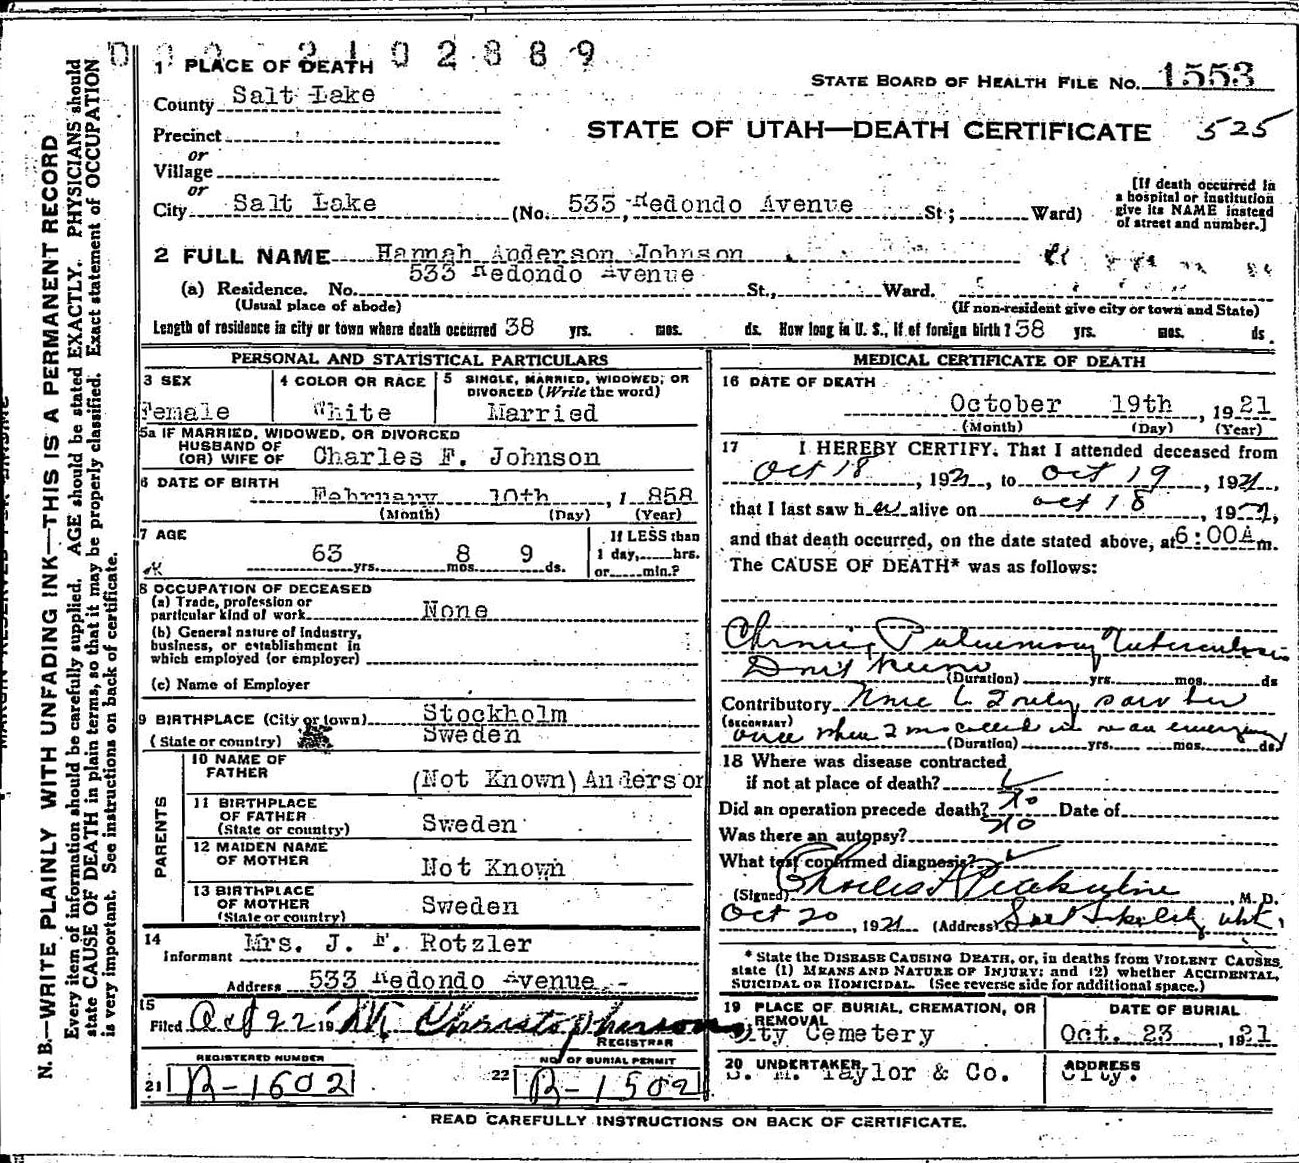 0 2 8 8 9
1 PLACE OF DEATH
STATE BOARD OF HEALTH FILE NO. 1553
County Salt Lake
STATE OF UTAH—DEATH CERTIFICATE 525
Precinct
or
Village
or
City Salt Lake (No. 533 Redondo Avenue St; Ward)
[If death occurred in
a hospital or institution
give its NAME instead
of street and number.]
2 FULL NAME Hannah Anderson Johnson
533 Redondo Avenue
(a) Residence. No. St., Ward.
(Usual place of abode) (If non-resident give city or town and State)
Length of residence in city or town where death occurred 38 yrs. mos. ds. How long in U. S., if of foreign birth? 38 yrs. mos. ds.
PERSONAL AND STATISTICAL PARTICULARS
3 SEX 4 COLOR OR RACE 5 SINGLE, MARRIED, WIDOWED, OR
DIVORCED (Write the word)
Female White Married
5a IF MARRIED, WIDOWED, OR DIVORCED
HUSBAND OF
(OR) WIFE OF Charles F. Johnson
6 DATE OF BIRTH
February 10th, 1 858
(Month) (Day) (Year)
7 AGE If LESS than
63 yrs. 8 mos. 9 ds. 1 day, hrs.
or min.?
8 OCCUPATION OF DECEASED
(a) Trade, profession or
particular kind of work None
(b) General nature of industry,
business, or establishment in
which employed (or employer)
(c) Name of Employer
9 BIRTHPLACE (City or town) Stockholm
(State or country) Sweden
PARENTS
10 NAME OF
FATHER (Not Known) Anderson
11 BIRTHPLACE
OF FATHER
(State or country) Sweden
12 MAIDEN NAME
OF MOTHER Not Known
13 BIRTHPLACE
OF MOTHER
(State or country) Sweden
14
Informant Mrs. J. F. Rotzler
Address 533 Redondo Avenue.
15
Filed Oct 22 19 Christopherson
REGISTRAR
REGISTERED NUMBER NO. OF BURIAL PERMIT
21 B-1602 22 B-1502
MEDICAL CERTIFICATE OF DEATH
16 DATE OF DEATH
October 19th, 1921
(Month) (Day) (Year)
17 I HEREBY CERTIFY, That I attended deceased from
Oct 18, 1921, to Oct 19, 1921,
that I last saw her alive on Oct 18, 1921,
and that death occurred, on the date stated above, at 6:00A m.
The CAUSE OF DEATH* was as follows:
Chronic Pulmonary Tuberculosis
Don't know
(Duration) yrs. mos. ds
Contributory None I only saw her
(SECONDARY) once when I was called in in an emergency
(Duration) yrs. mos. ds.
18 Where was disease contracted
if not at place of death?
Did an operation precede death? No Date of
Was there an autopsy? No
What test confirmed diagnosis?
(Signed) Charles, M. D.
Oct 20, 1921 (Address) Salt Lake City Utah
* State the DISEASE CAUSING DEATH, or, in deaths from VIOLENT CAUSES,
state (1) MEANS AND NATURE OF INJURY; and (2) whether ACCIDENTAL,
SUICIDAL OR HOMICIDAL. (See reverse side for additional space.)
19 PLACE OF BURIAL, CREMATION, OR
REMOVAL DATE OF BURIAL
City Cemetery Oct. 23, 1921
20 UNDERTAKER ADDRESS
S. M. Taylor & Co. City.
READ CAREFULLY INSTRUCTIONS ON BACK OF CERTIFICATE.
N. B.—WRITE PLAINLY WITH UNFADING INK—THIS IS A PERMANENT RECORD
Every item of information should be carefully supplied. AGE should be stated EXACTLY. PHYSICIANS should
state CAUSE OF DEATH in plain terms, so that it may be properly classified. Exact statement of OCCUPATION
is very important. See instructions on back of certificate.